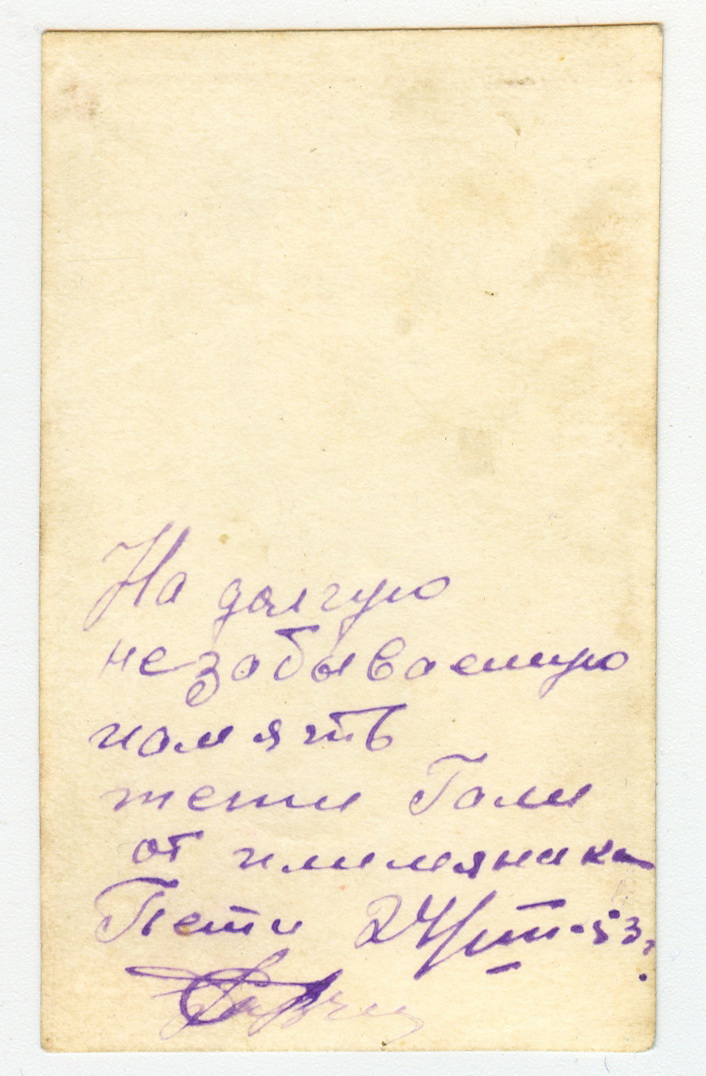 На долгую
незабываемую
память
тети Гали
от плимяника
Пети 24/VIII-53г.